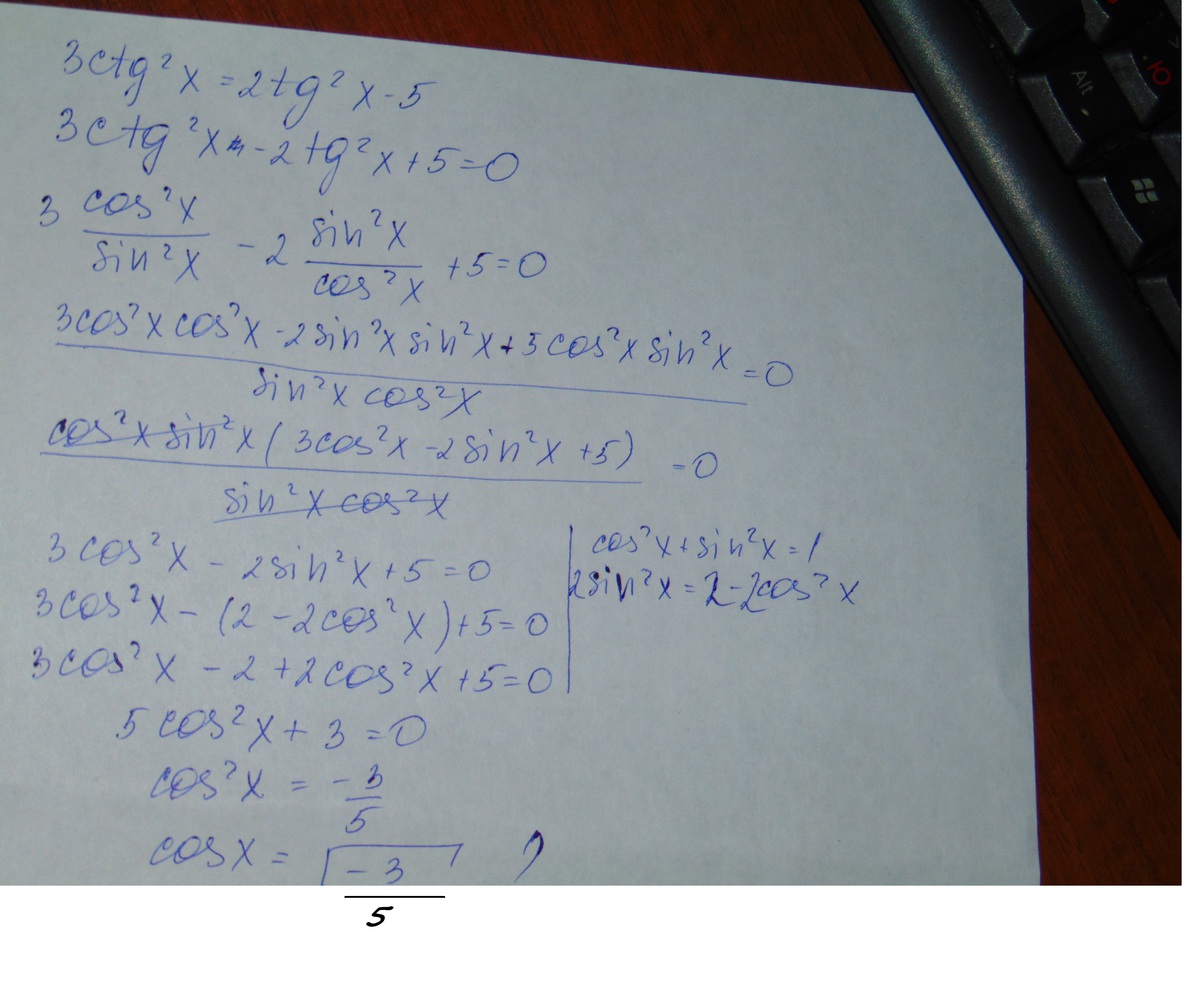 3ctg²x = 2tg²x - 5
3ctg²x - 2tg²x + 5 = 0
3 cos²x / sin²x - 2 sin²x / cos²x + 5 = 0
3cos²x cos²x - 2sin²x sin²x + 5cos²x sin²x / sin²x cos²x = 0
cos²x sin²x (3cos²x - 2sin²x + 5) / sin²x cos²x = 0
3cos²x - 2sin²x + 5 = 0
3cos²x - (2 - 2cos²x) + 5 = 0
3cos²x - 2 + 2cos²x + 5 = 0
cos²x + sin²x = 1
2sin²x = 2 - 2cos²x
5cos²x + 3 = 0
cos²x = -3/5
cosx = √-3/5 ?
Alt
Ю